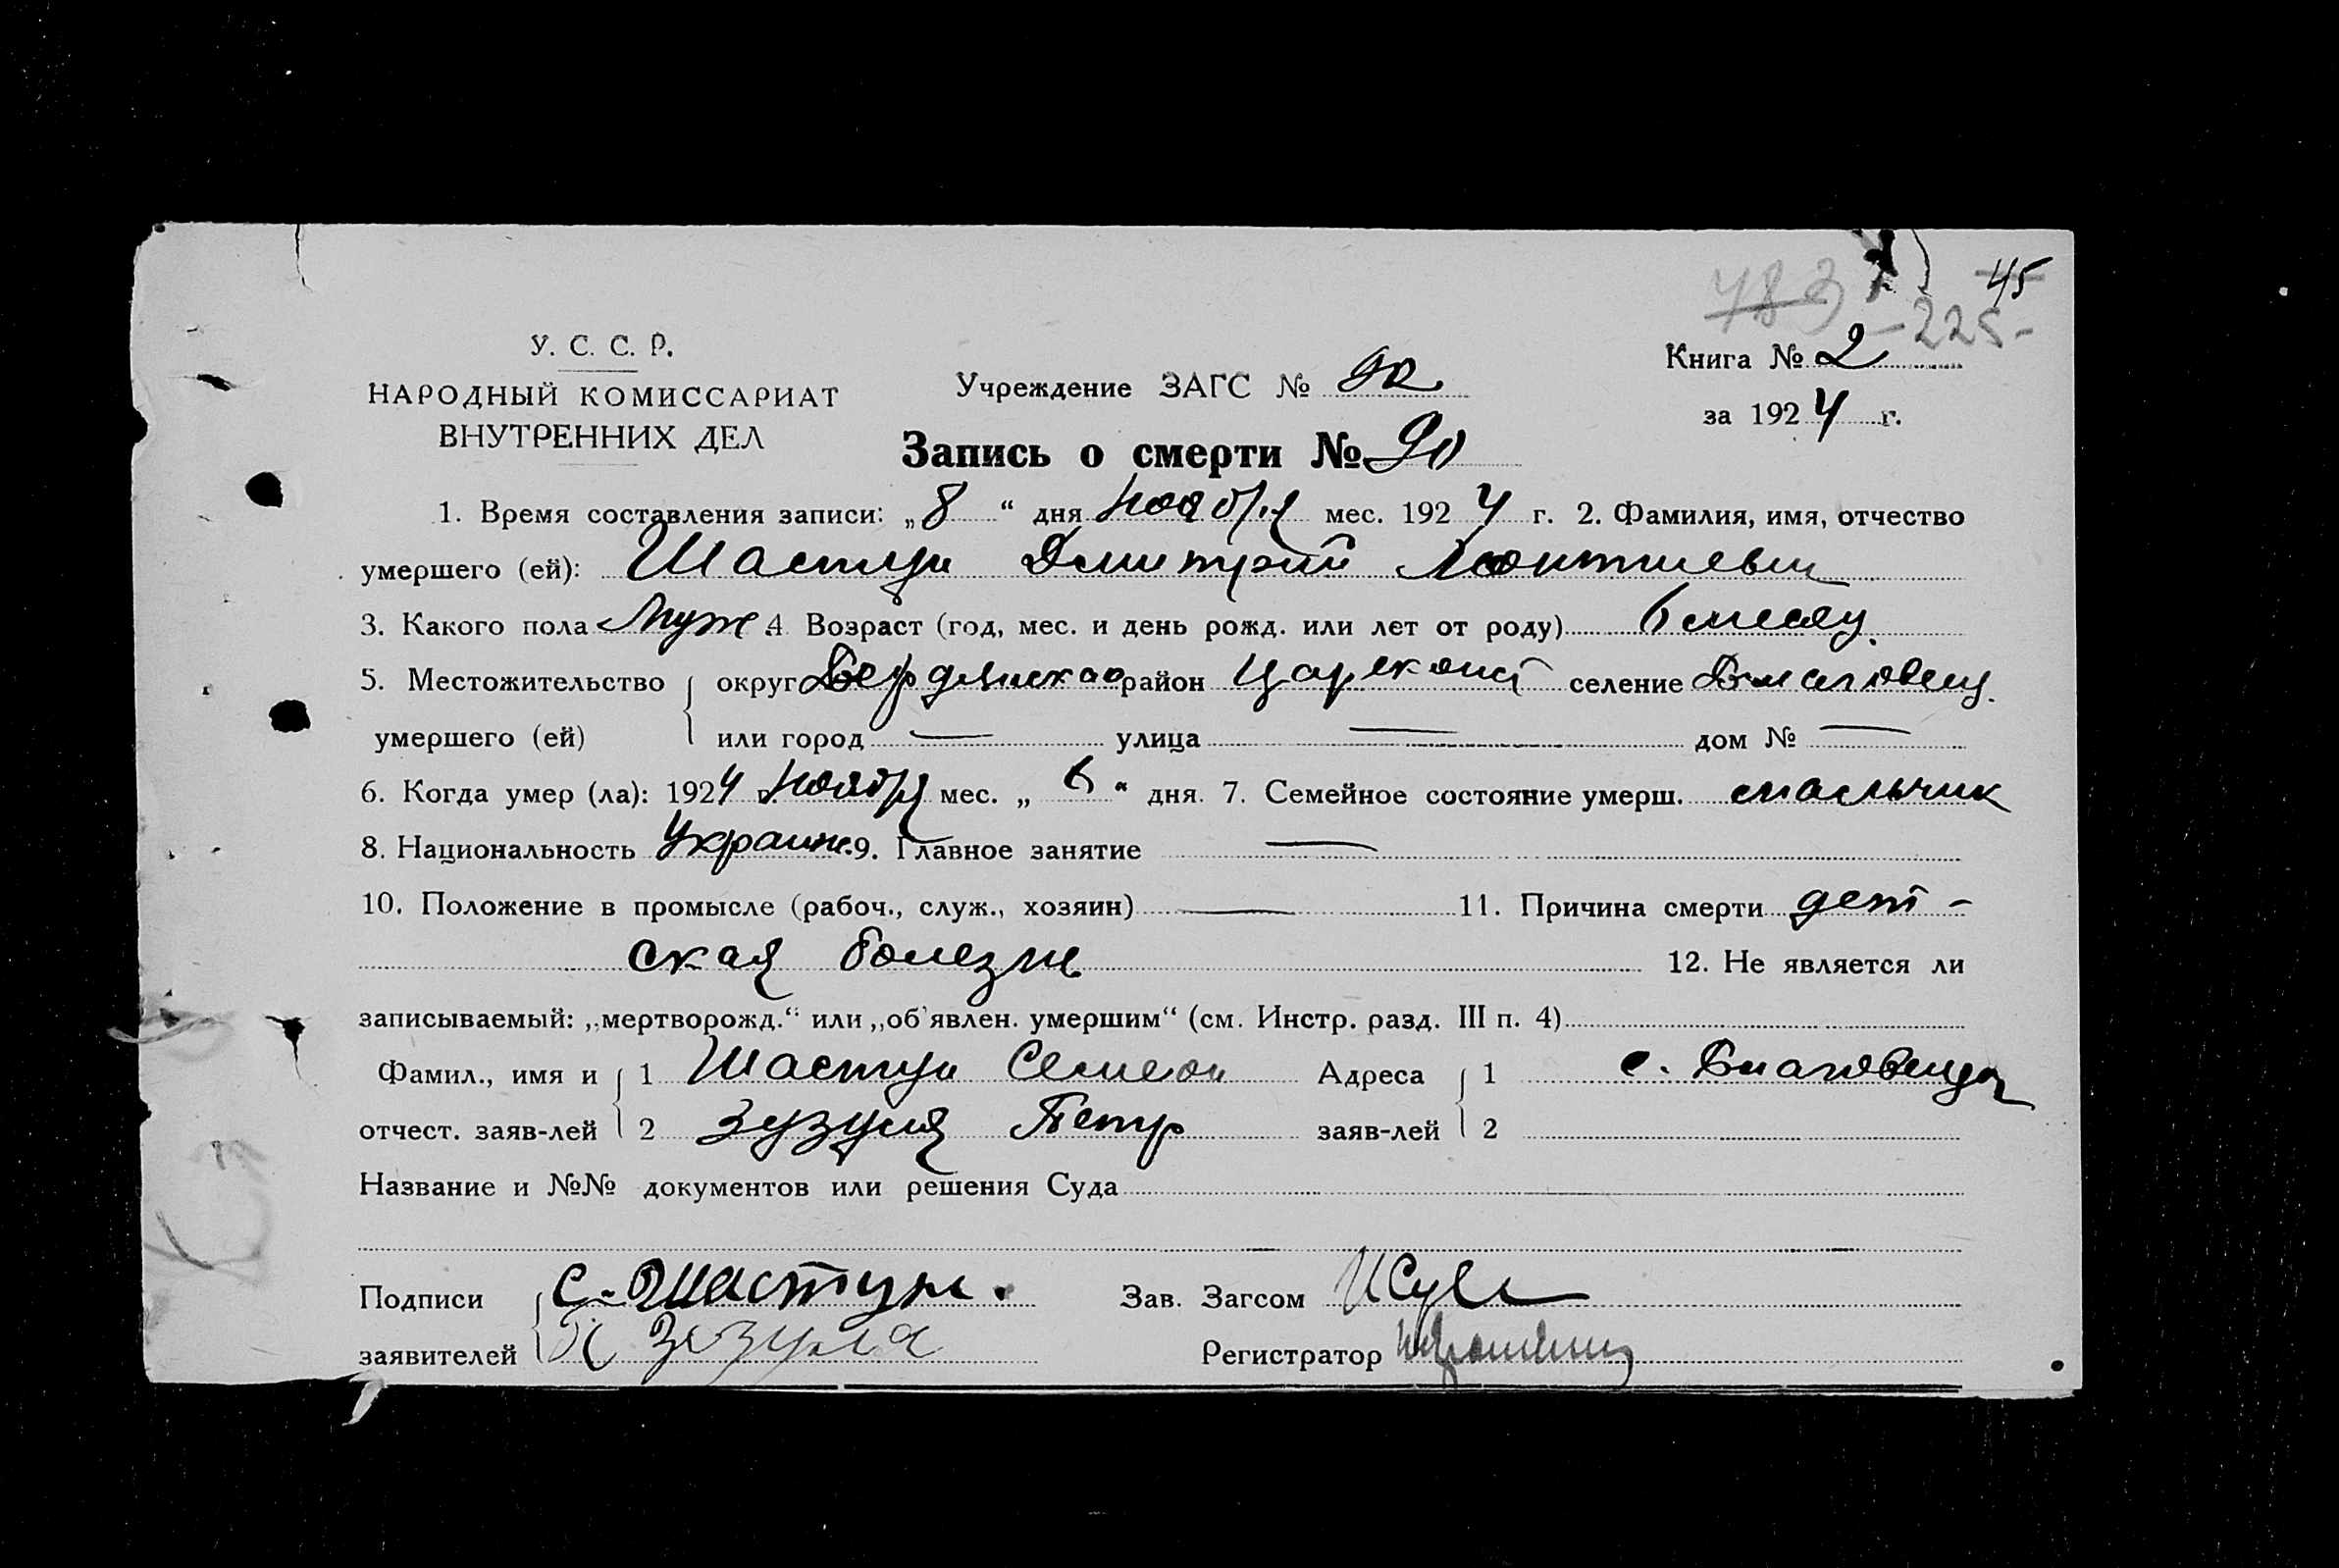 45
783
-225-
У. С. С. Р.
НАРОДНЫЙ КОМИССАРИАТ
ВНУТРЕННИХ ДЕЛ
Учреждение ЗАГС №
Книга № 2
за 1924 г.
Запись о смерти № 90
1. Время составления записи: „8“ дня ноября мес. 1924 г. 2. Фамилия, имя, отчество
умершего (ей): Шастун Дмитрий Леонтиевич
3. Какого пола Муж. 4 Возраст (год, мес. и день рожд. или лет от роду) 6 месяц.
5. Местожительство умершего (ей) округ Бердянская район Цареконст селение Благовещ.
или город — улица — дом № —
6. Когда умер (ла): 1924 г. ноября мес. „6“ дня. 7. Семейное состояние умерш. мальчик
8. Национальность Украин. 9. Главное занятие —
10. Положение в промысле (рабоч., служ., хозяин) — 11. Причина смерти дет-
ская болезнь 12. Не является ли
записываемый: „мертворожд.“ или „об'явлен. умершим“ (см. Инстр. разд. III п. 4)
Фамил., имя и отчест. заяв-лей 1 Шастун Семеон Адреса заяв-лей 1 с. Благовещен
2 Зузуля Петр 2
Название и №№ документов или решения Суда
Подписи заявителей С. Шастун. Зав. Загсом
П Зозуля Регистратор